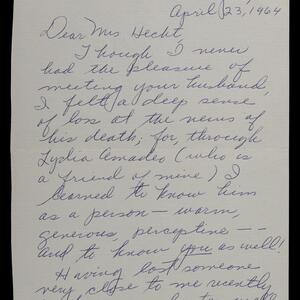 April 23, 1964
Dear Mrs Hecht,
Though I never
had the pleasure of
meeting your husband,
I felt a deep sense
of loss at the news of
his death; for, through
Lydia Amadeo (who is
a friend of mine) I
learned to know him
as a person — warm,
generous, perceptive --
and to know you as well!
Having lost someone
very close to me recently